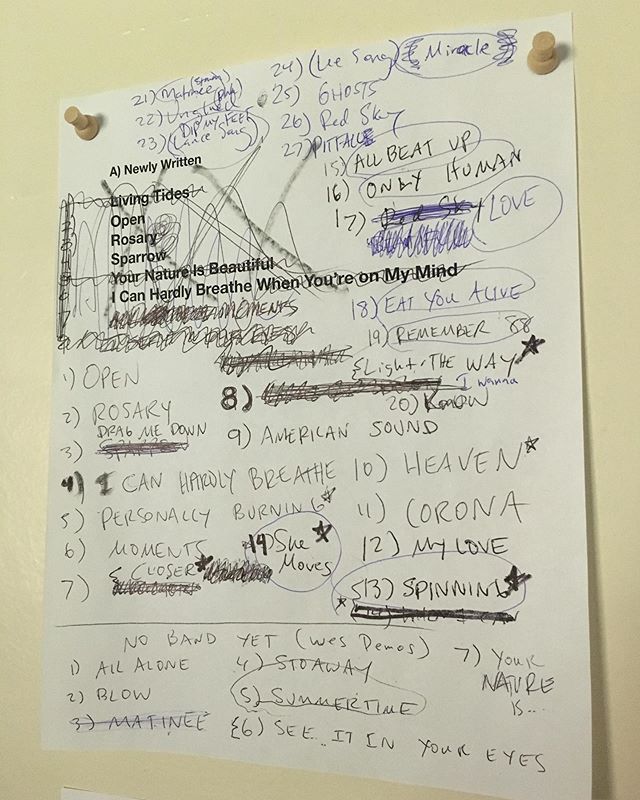 21) Matinee (strong)
22) Unglued
DP My Feet
23) (Lance Song)
24) (Lee Song) (Miracle)
25) GHOSTS
26) Red Sky
27) PITFALLS
15) ALL BEAT UP
16) ONLY HUMAN
17) Red Sky LOVE
18) EAT YOU ALIVE
19) REMEMBER '88
A) Newly Written
Living Tides
Open
Rosary
Sparrow
Your Nature Is Beautiful
I Can Hardly Breathe When You're on My Mind
MOMENTS
1) OPEN
2) ROSARY
DRAG ME DOWN
3)
4) I CAN HARDLY BREATHE
5) PERSONALLY BURNING
6) MOMENTS
7) CLOSER
8) Light THE WAY
I wanna
20) KNOW
9) AMERICAN SOUND
10) HEAVEN
11) CORONA
12) MY LOVE
13) SPINNING
14) She Moves
NO BAND YET (Wes Demos)
1) ALL ALONE
2) BLOW
3) MATINEE
4) STOAWAY
5) SUMMERTIME
6) SEE... IT IN YOUR EYES
7) YOUR
NATURE
IS...